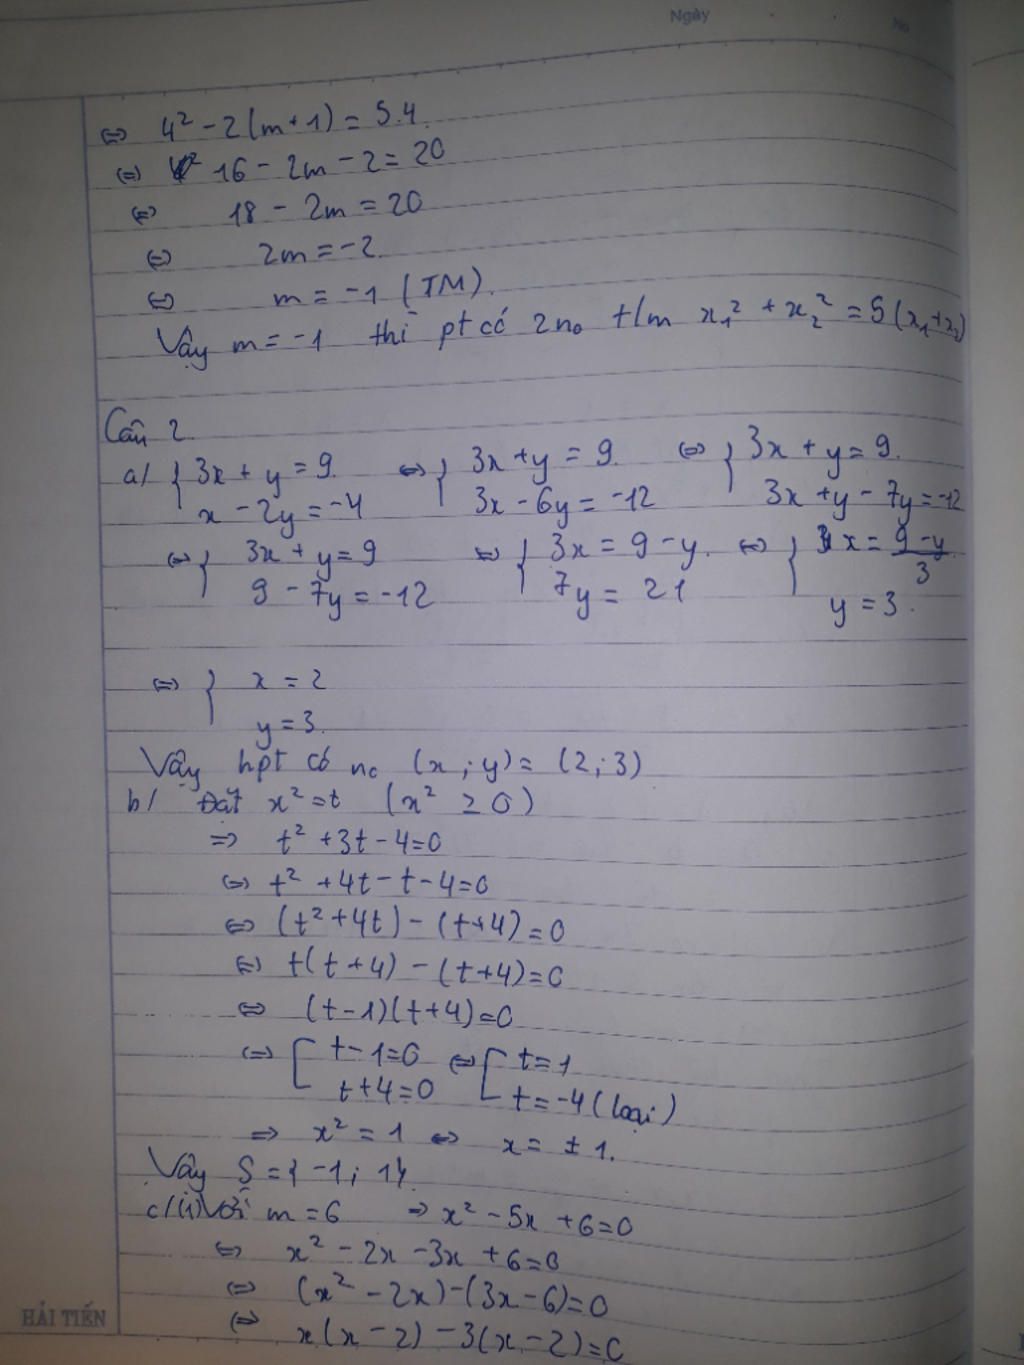 Ngày
No
⇔ 4² - 2(m+1) = 5.4
⇔ 16 - 2m - 2 = 20
⇔ 18 - 2m = 20
⇔ 2m = -2
⇔ m = -1 (TM).
Vậy m = -1 thì pt có 2 no t/m x₁² + x₂² = 5(x₁+x₂)
Câu 2
a/ { 3x + y = 9 ⇔ { 3x + y = 9 ⇔ { 3x + y = 9
x - 2y = -4 3x - 6y = -12 3x + y - 7y = -12
⇔ { 3x + y = 9 ⇔ { 3x = 9 - y ⇔ { x = (9 - y)/3
9 - 7y = -12 7y = 21 y = 3
⇔ { x = 2
y = 3
Vậy hpt có no (x; y) = (2; 3)
b/ Đặt x² = t (x² ≥ 0)
⇒ t² + 3t - 4 = 0
⇔ t² + 4t - t - 4 = 0
⇔ (t² + 4t) - (t + 4) = 0
⇔ t(t + 4) - (t + 4) = 0
⇔ (t - 1)(t + 4) = 0
⇔ [ t - 1 = 0 ⇔ [ t = 1
t + 4 = 0 t = -4 (loại)
⇒ x² = 1 ⇔ x = ± 1.
Vậy S = {-1; 1}
c/(i) Với m = 6 ⇒ x² - 5x + 6 = 0
⇔ x² - 2x - 3x + 6 = 0
⇔ (x² - 2x) - (3x - 6) = 0
⇔ x(x - 2) - 3(x - 2) = 0
HẢI TIẾN